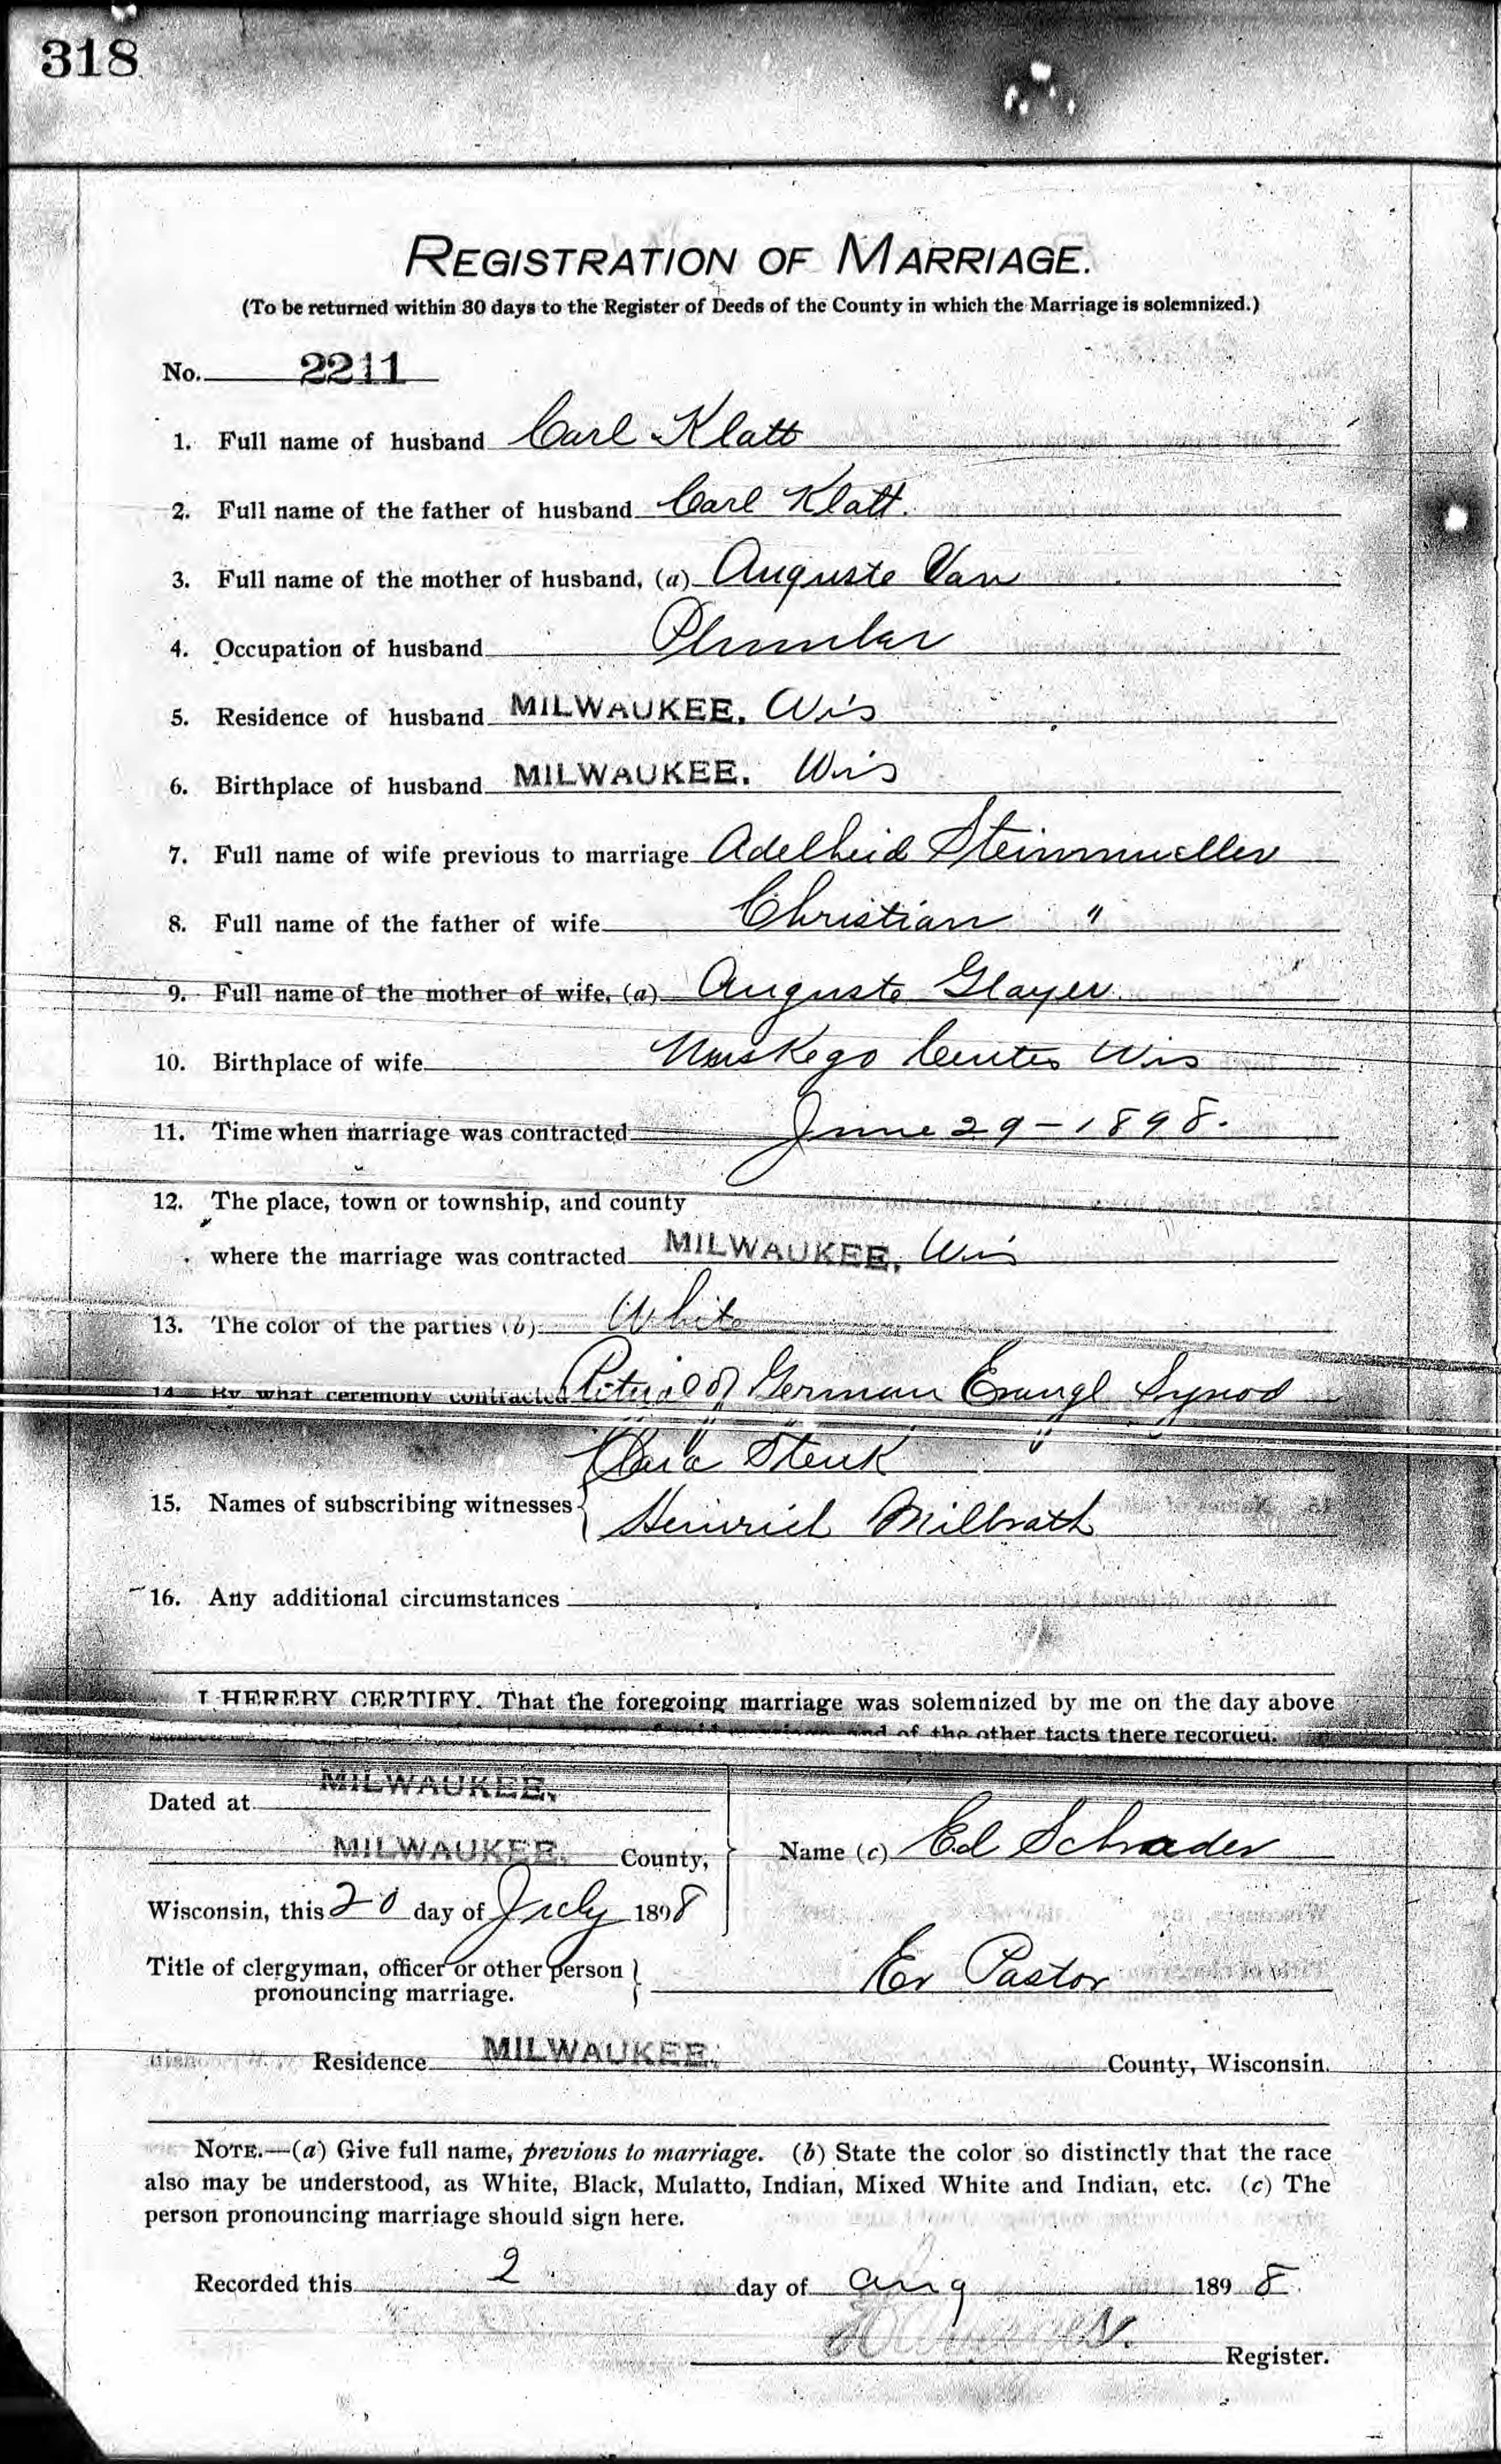 318
REGISTRATION OF MARRIAGE.
(To be returned within 30 days to the Register of Deeds of the County in which the Marriage is solemnized.)
No. 2211
1. Full name of husband Carl Klatt
2. Full name of the father of husband Carl Klatt.
3. Full name of the mother of husband, (a) Auguste Van
4. Occupation of husband Plumber
5. Residence of husband MILWAUKEE. Wis
6. Birthplace of husband MILWAUKEE. Wis
7. Full name of wife previous to marriage Adelheid Steinmueller
8. Full name of the father of wife Christian "
9. Full name of the mother of wife, (a) Auguste Glayer
10. Birthplace of wife Muskego Center Wis
11. Time when marriage was contracted June 29-1898.
12. The place, town or township, and county
where the marriage was contracted MILWAUKEE. Wis
13. The color of the parties (b) White
14. By what ceremony contracted Ritual of German Evangl Synod
Clara Stenk
15. Names of subscribing witnesses
Heinrich Milbrath
16. Any additional circumstances
I HEREBY CERTIFY, That the foregoing marriage was solemnized by me on the day above
and of the other facts there recorded.
Dated at MILWAUKEE.
MILWAUKEE. County,
Name (c) Ed Schrader
Wisconsin, this 20 day of July 1898
Title of clergyman, officer or other person
pronouncing marriage. Ev Pastor
Residence MILWAUKEE. County, Wisconsin.
NOTE.—(a) Give full name, previous to marriage. (b) State the color so distinctly that the race
also may be understood, as White, Black, Mulatto, Indian, Mixed White and Indian, etc. (c) The
person pronouncing marriage should sign here.
Recorded this 2 day of Aug 1898.
Register.